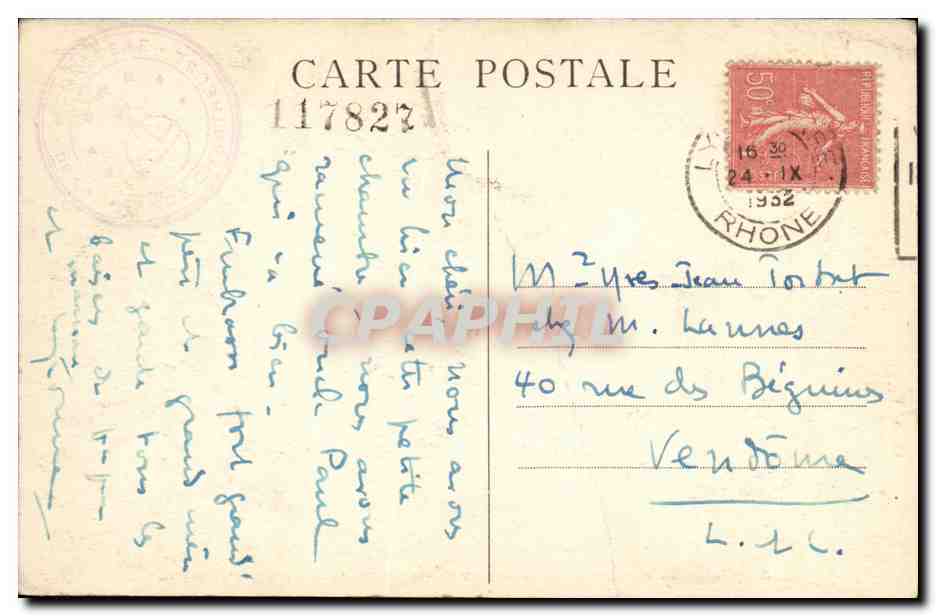 CARTE POSTALE
117827
50c
REPUBLIQUE FRANCAISE
16 30
24 - IX
1932
RHONE
CPAPHIL
Mon chéri nous avons
vu hier cette petite
chambre, nous avons
ramené oncle Paul
qui va bien.
Embrasse fort grand
père et grand mère
et garde tous les
baisers de papa
et maman
Mr Yves-Jean
chez M. Lannes
40 rue des Béguines
Vendôme
L. et C.